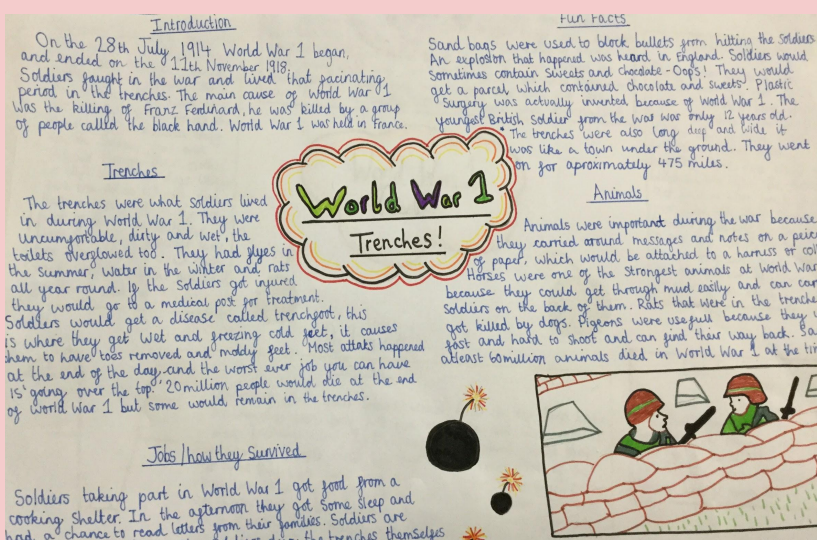 Introduction
On the 28th July 1914 World War 1 began,
and ended on the 11th November 1918.
Soldiers fought in the war and lived that facinating
period in the trenches. The main cause of World War 1
was the killing of Franz Ferdinand, he was killed by a group
of people called the black hand. World War 1 was held in France.
Trenches
The trenches were what soldiers lived
in during World War 1. They were
uncumfortable, dirty and wet, the
toilets overflowed too. They had flyes in
the summer, water in the winter and rats
all year round. If the Soldiers got injured
they would go to a medical post for treatment.
Soldiers would get a disease called trenchfoot, this
is where they get wet and freezing cold feet, it causes
them to have toes removed and moldy feet. Most attaks happened
at the end of the day and the worst ever job you can have
is 'going over the top.' 20 million people would die at the end
of world War 1 but some would remain in the trenches.
Jobs/how they Survived
Soldiers taking part in World War 1 got food from a
cooking shelter. In the afternoon they got some sleep and
had a chance to read letters from their families. Soldiers are
the trenches themselves
World War 1
Trenches!
Fun Facts
Sand bags were used to block bullets from hitting the soldiers
An explosion that happened was heard in England. Soldiers would
sometimes contain sweets and chocolate - Oops! They would
get a parcel which contained chocolate and sweets. Plastic
Surgery was actually invented because of World War 1. The
youngest British soldier from the war was only 12 years old.
The trenches were also long deep and wide it
was like a town under the ground. They went
on for aproximately 475 miles.
Animals
Animals were important during the war because
they carried around messages and notes on a
of paper, which would be attached to a harness or
Horses were one of the strongest animals at World War
because they could get through mud easily and can
soldiers on the back of them. Rats that were in the
got killed by dogs. Pigeons were usefull because they
fast and hard to shoot and can find their way back.
atleast 60 million animals died in World War 1 at the